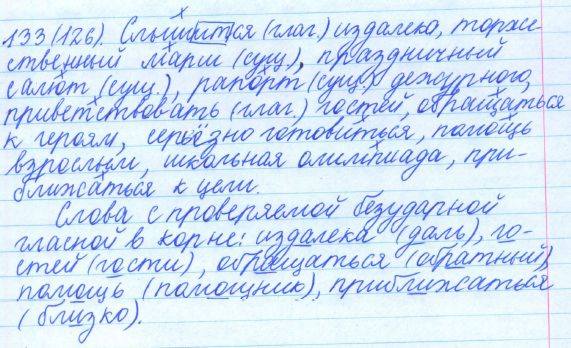 133 (126). Слышится (глаг.) издалека, торже-
ственный марш (сущ.), праздничный
салют (сущ.), рапорт (сущ.) дежурного,
приветствовать (глаг.) гостей, обращаться
к героям, серьёзно готовиться, помощь
взрослым, школьная олимпиада, при-
ближаться к цели.
Слова с проверяемой безударной
гласной в корне: издалека (даль), го-
стей (гости), обращаться (обратный),
помощь (помощник), приближаться
(близко).